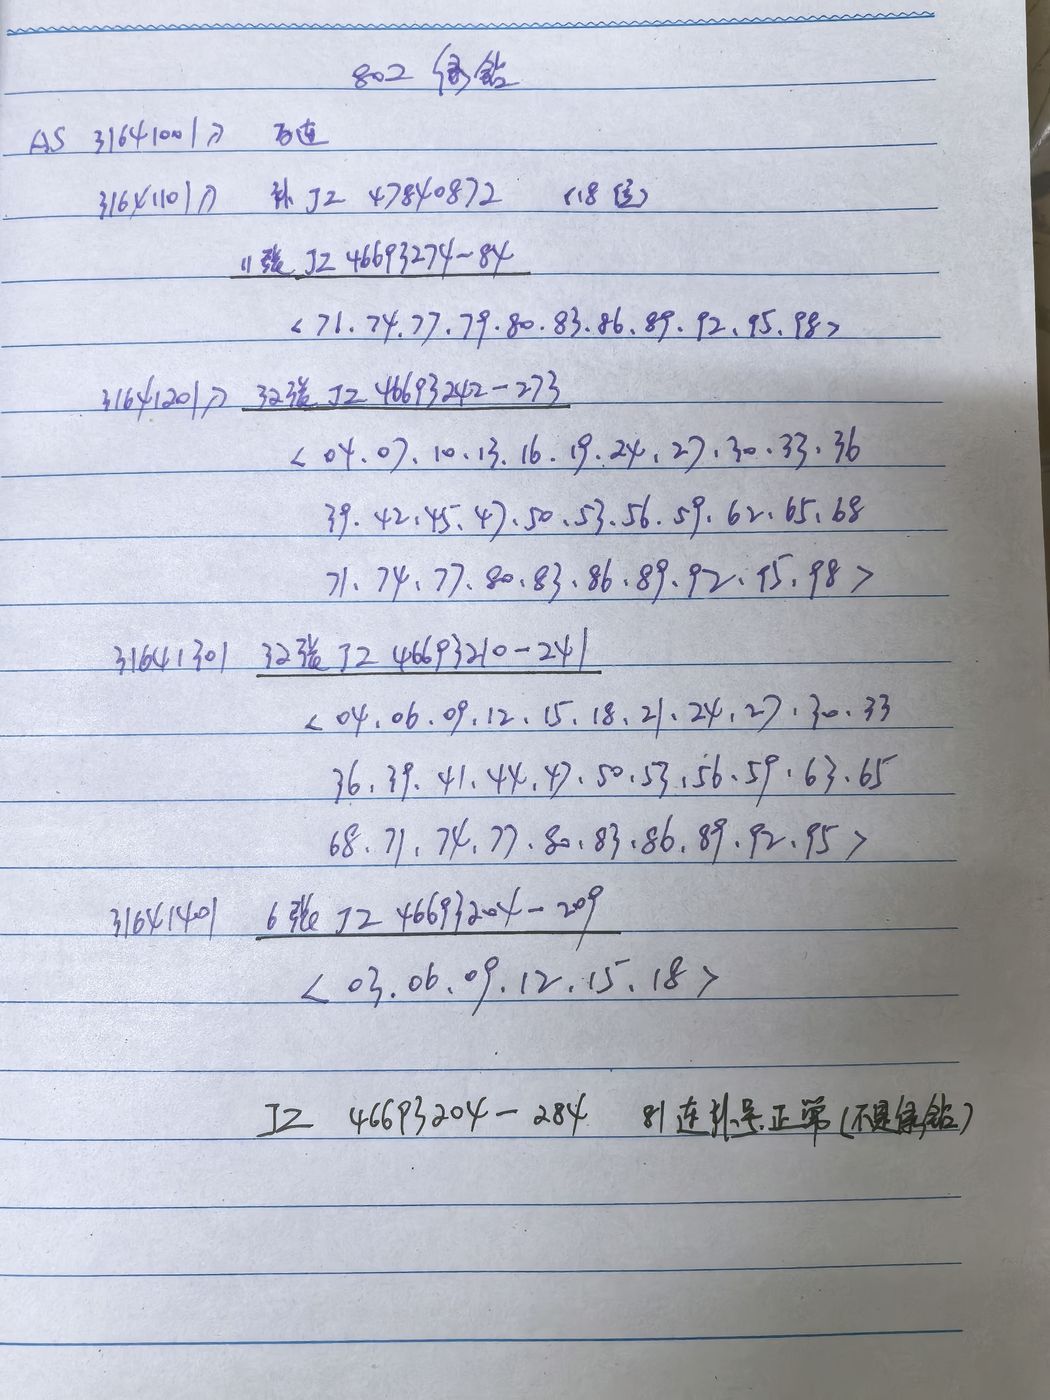 802 绿钻
AS 31641001刀 百连
31641101刀 补 JZ 47840872 <18 位>
11张 JZ 46693274-84
<71.74.77.79.80.83.86.89.92.95.98>
31641201刀 32张 JZ 46693242-273
<04.07.10.13.16.19.24.27.30.33.36
39.42.45.47.50.53.56.59.62.65.68
71.74.77.80.83.86.89.92.95.98>
31641301 32张 JZ 46693210-241
<04.06.09.12.15.18.21.24.27.30.33
36.39.41.44.47.50.53.56.59.63.65
68.71.74.77.80.83.86.89.92.95>
31641401 6张 JZ 46693204-209
<03.06.09.12.15.18>
JZ 46693204-284 81连补号正常(不是绿钻)